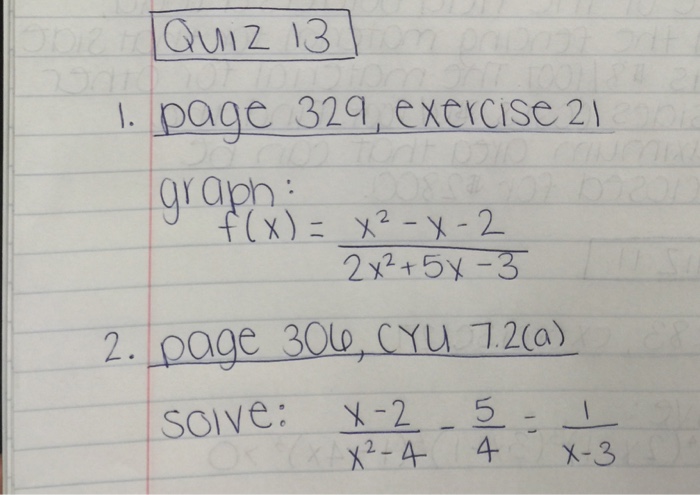 QUIZ 13
1. page 329, exercise 21
graph:
f(x) = (x² - x - 2)/(2x² + 5x - 3)
2. page 306, CYU 7.2(a)
solve: (x - 2)/(x² - 4) - 5/4 = 1/(x - 3)